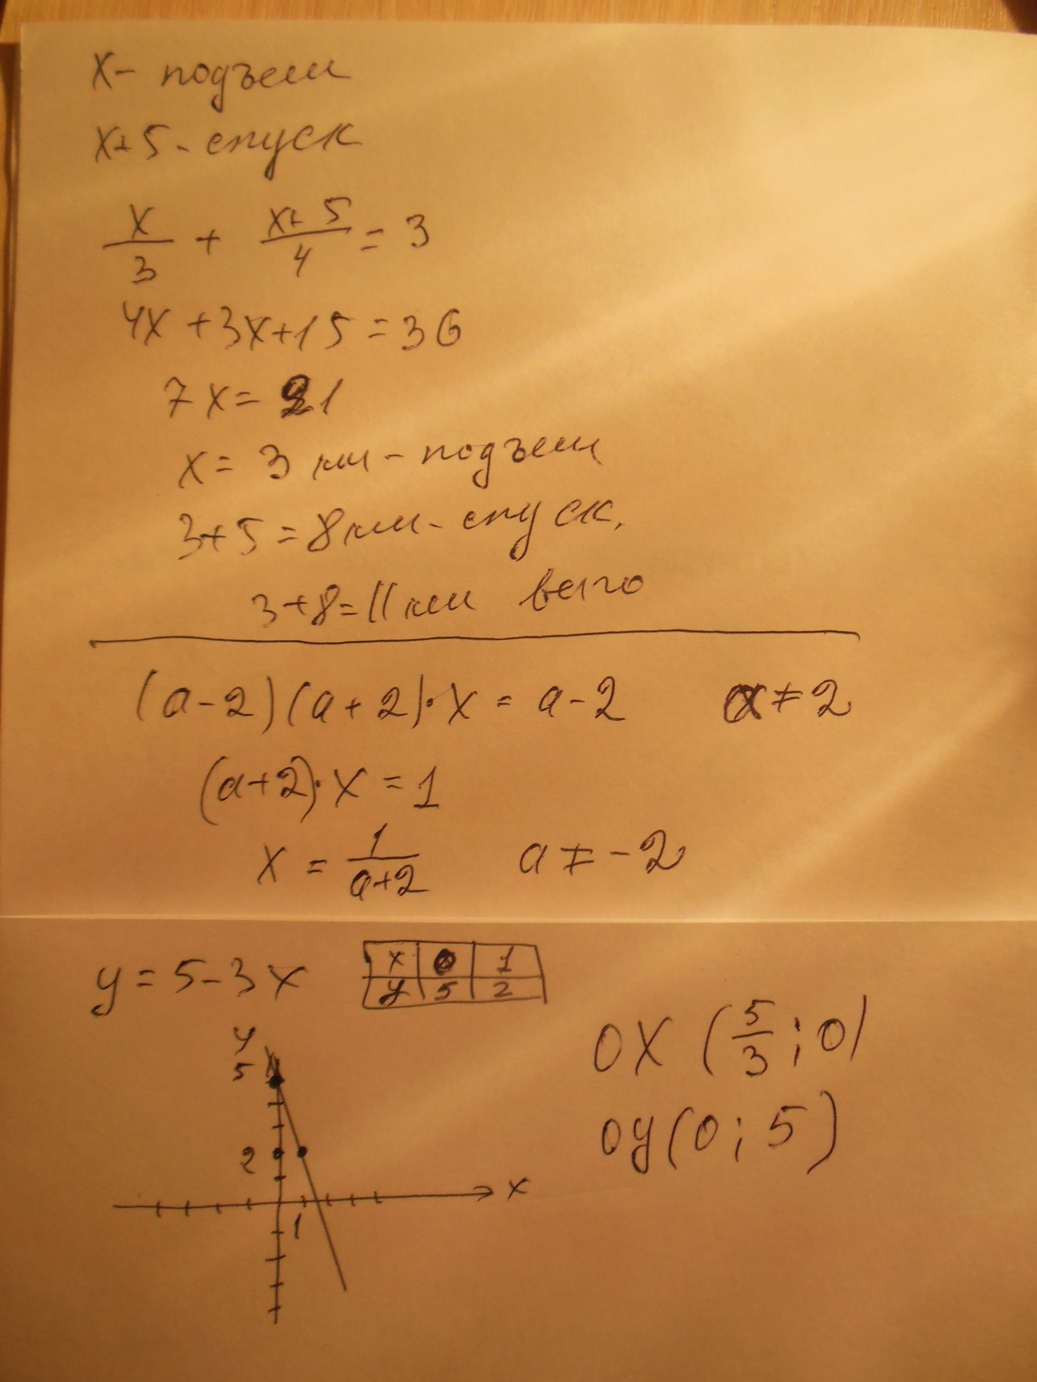 x - подъем
x+5 - спуск
x/3 + (x+5)/4 = 3
4x + 3x + 15 = 36
7x = 21
x = 3 км - подъем
3+5 = 8 км - спуск.
3+8 = 11 км всего
(a-2)(a+2)·x = a-2 a ≠ 2
(a+2)·x = 1
x = 1/(a+2) a ≠ -2
y = 5-3x
x 0 1
y 5 2
OX (5/3; 0)
OY (0; 5)
y
5
2
x
1